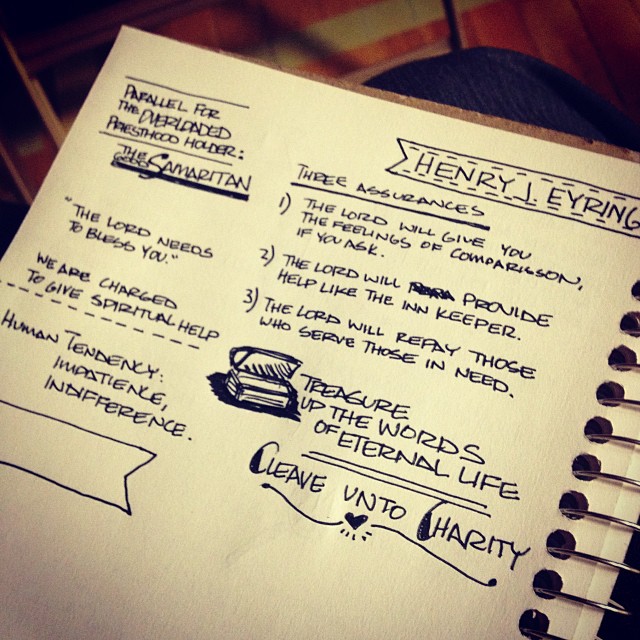 PARALLEL FOR
THE OVERLOADED
PRIESTHOOD HOLDER:
THE GOOD SAMARITAN
"THE LORD NEEDS
TO BLESS YOU."
WE ARE CHARGED
TO GIVE SPIRITUAL HELP
HUMAN TENDENCY:
IMPATIENCE,
INDIFFERENCE.
HENRY J. EYRING
THREE ASSURANCES
1) THE LORD WILL GIVE YOU
THE FEELINGS OF COMPARISSON,
IF YOU ASK.
2) THE LORD WILL PROVIDE
HELP LIKE THE INN KEEPER.
3) THE LORD WILL REPAY THOSE
WHO SERVE THOSE IN NEED.
TREASURE
UP THE WORDS
OF ETERNAL LIFE
CLEAVE UNTO CHARITY